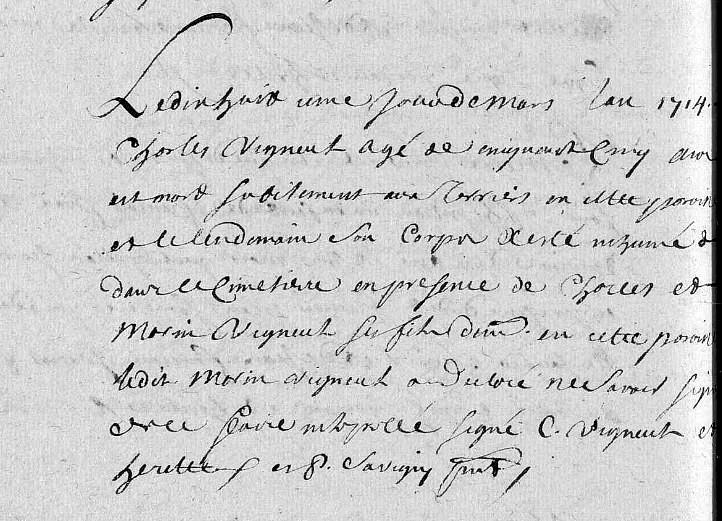 Le dix huit ieme jour de Mars lan 1714.
Charles Vigneut agé de cinquante Cinq ans
est mort subitement aux Terriers en cette paroiss
et le lendemain son Corps a esté inhumé
dans le Cimetiere en presence de Charles et
Morin Vigneut ses fils dem. en cette paroiss
ledit Morin Vigneut a declaré ne savoir sign
de ce faire interpellé signé C. Vigneut et
herette et P. Savigny